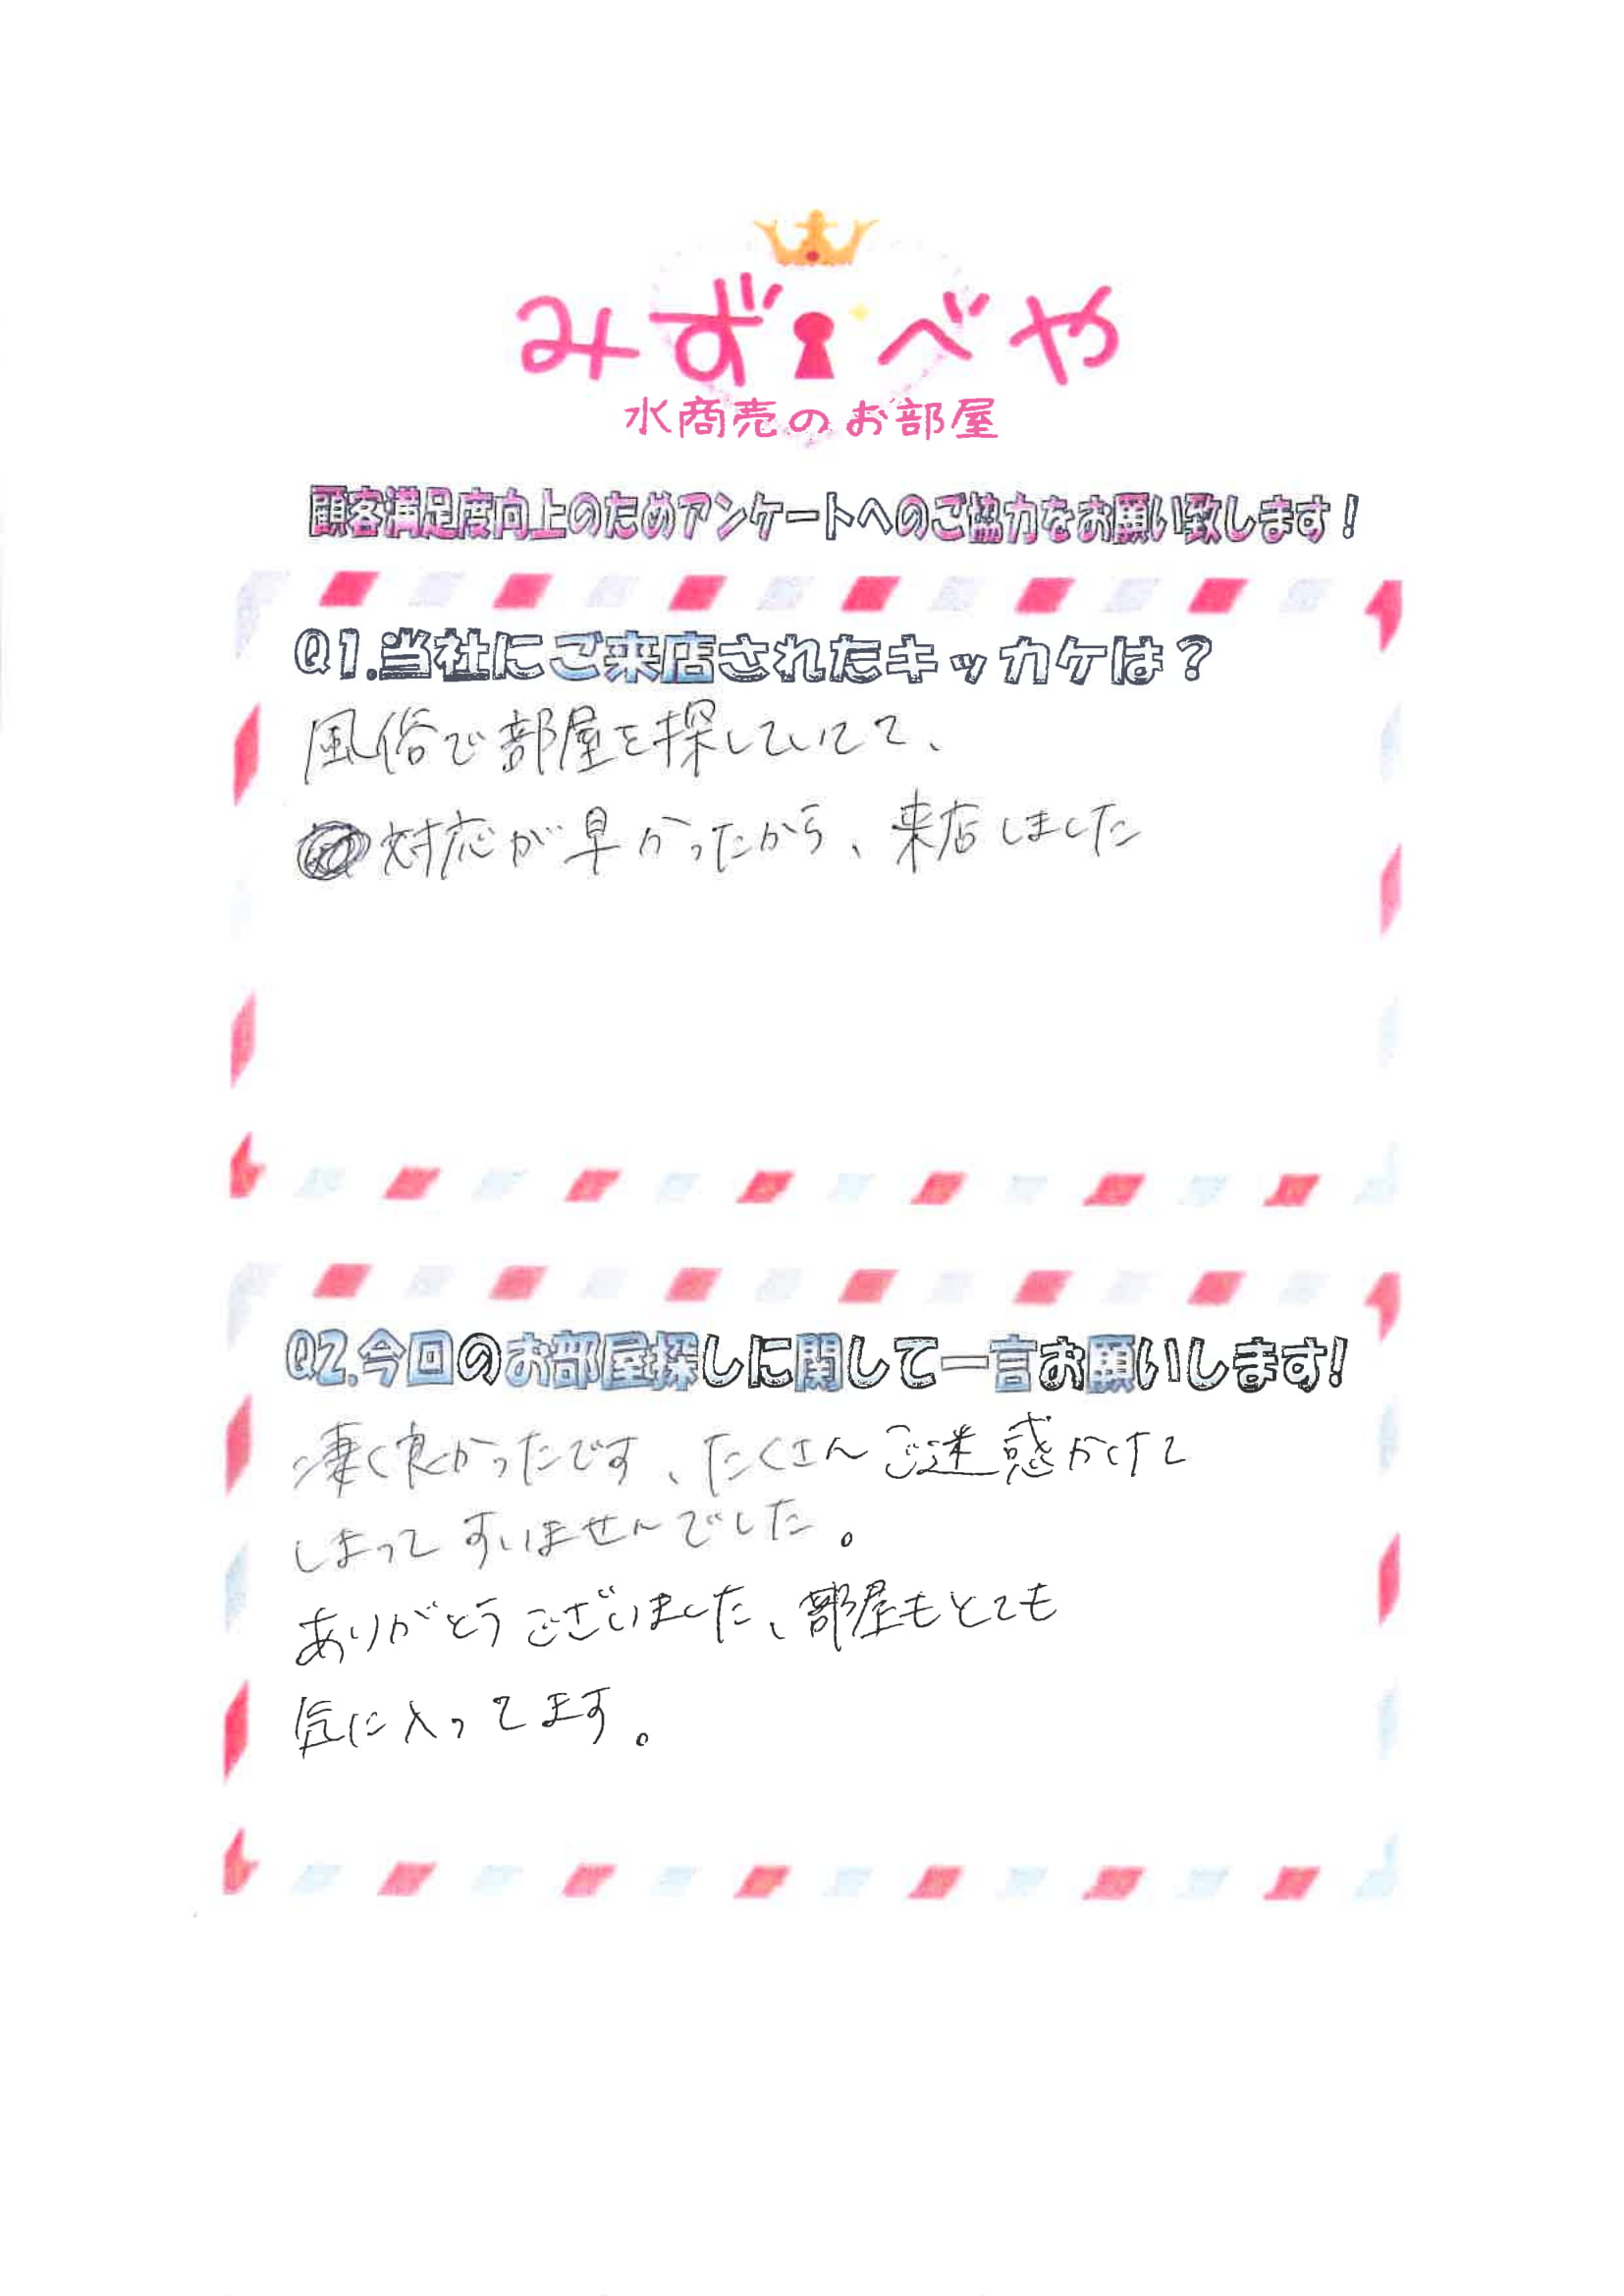 みずべや
水商売のお部屋
顧客満足度向上のためアンケートへのご協力をお願い致します！
Q1.当社にご来店されたキッカケは？
風俗で部屋を探していてて、
対応が早かったから、来店しました
Q2.今回のお部屋探しに関して一言お願いします！
凄く良かったです、たくさんご迷惑かけて
しまってすいませんでした。
ありがとうございました、部屋もとても
気に入ってます。